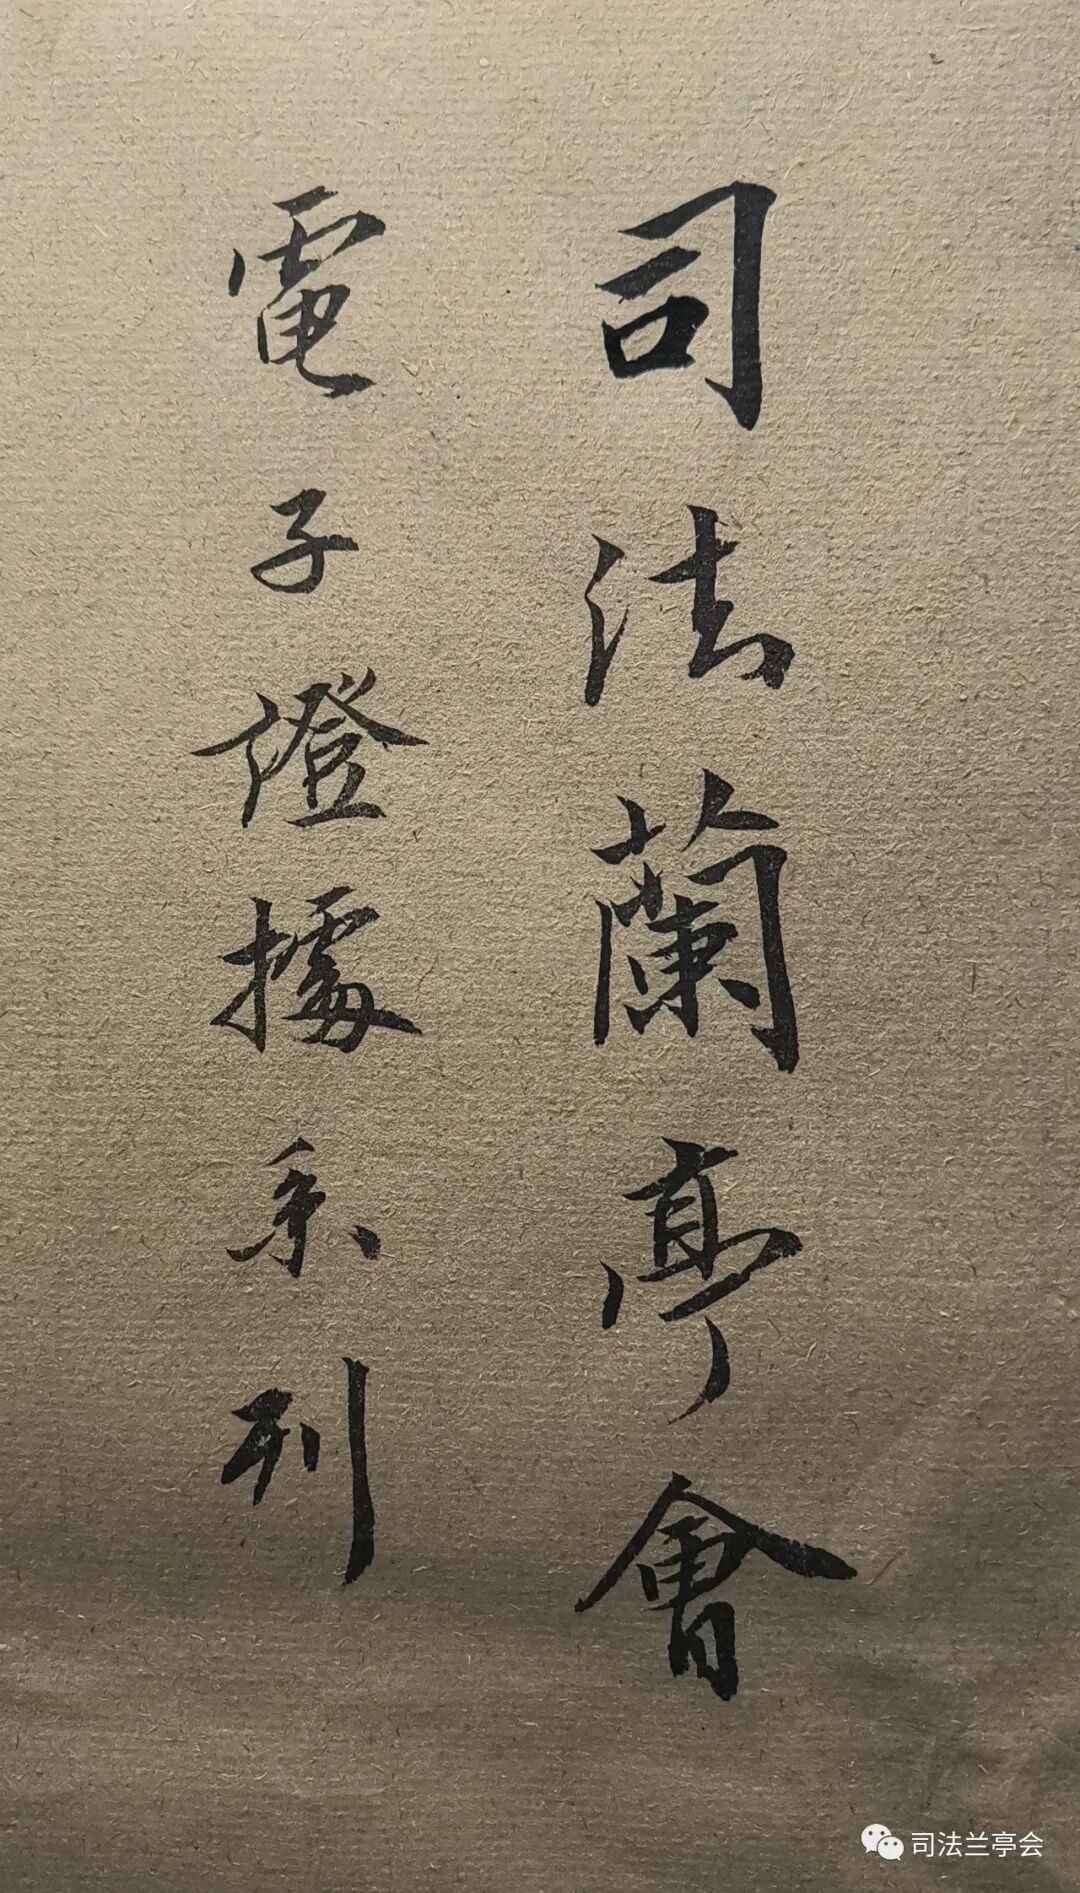 司法蘭亭會
電子證據系列
司法兰亭会